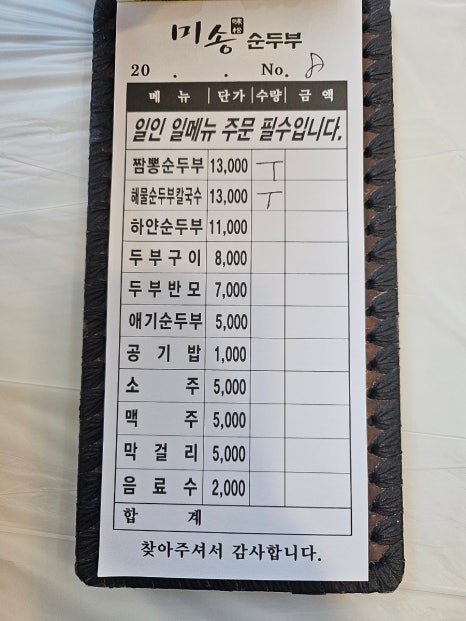 미송 味松 순두부
20 . . No. 8
메 뉴 단가 수량 금 액
일인 일메뉴 주문 필수입니다.
짬뽕순두부 13,000 T
해물순두부칼국수 13,000 T
하얀순두부 11,000
두부구이 8,000
두부반모 7,000
애기순두부 5,000
공기밥 1,000
소주 5,000
맥주 5,000
막걸리 5,000
음료수 2,000
합계
찾아주셔서 감사합니다.